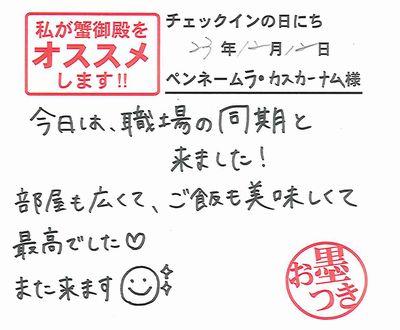 私が蟹御殿を
オススメ
します!!
チェックインの日にち
23年12月12日
ペンネームラ・カスカーナム様
今日は、職場の同期と
来ました!
部屋も広くて、ご飯も美味しくて
最高でした♡
また来ます
お墨つき